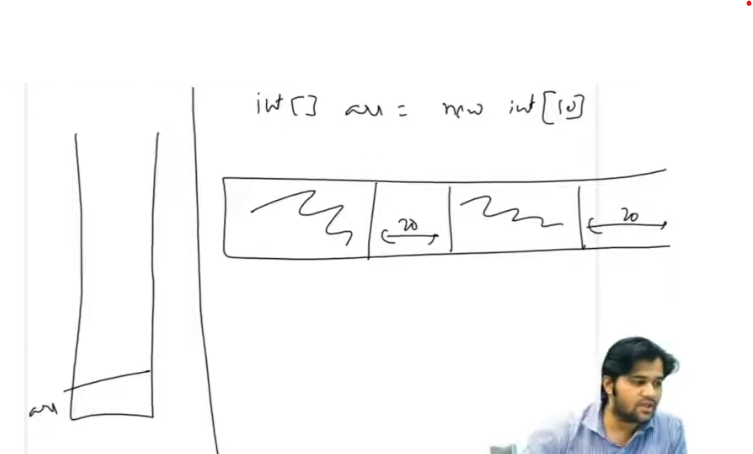 int[] arr = new int[10]
20
20
arr